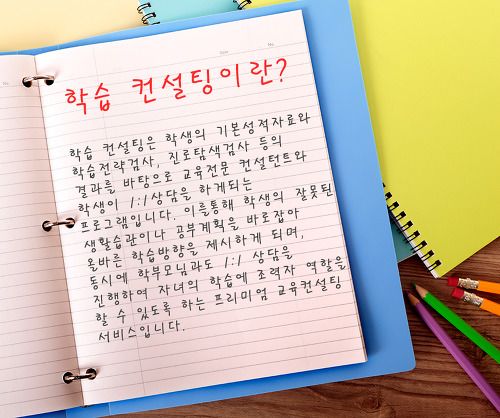 학습 컨설팅이란?
학습 컨설팅은 학생의 기본성적자료와
학습전략검사, 진로탐색검사 등의
결과를 바탕으로 교육전문 컨설턴트와
학생이 1:1상담을 하게되는
프로그램입니다. 이를통해 학생의 잘못된
생활습관이나 공부계획을 바로잡아
올바른 학습방향을 제시하게 되며,
동시에 학부모님과도 1:1 상담을
진행하여 자녀의 학습에 조력자 역할을
할 수 있도록 하는 프리미엄 교육컨설팅
서비스입니다.